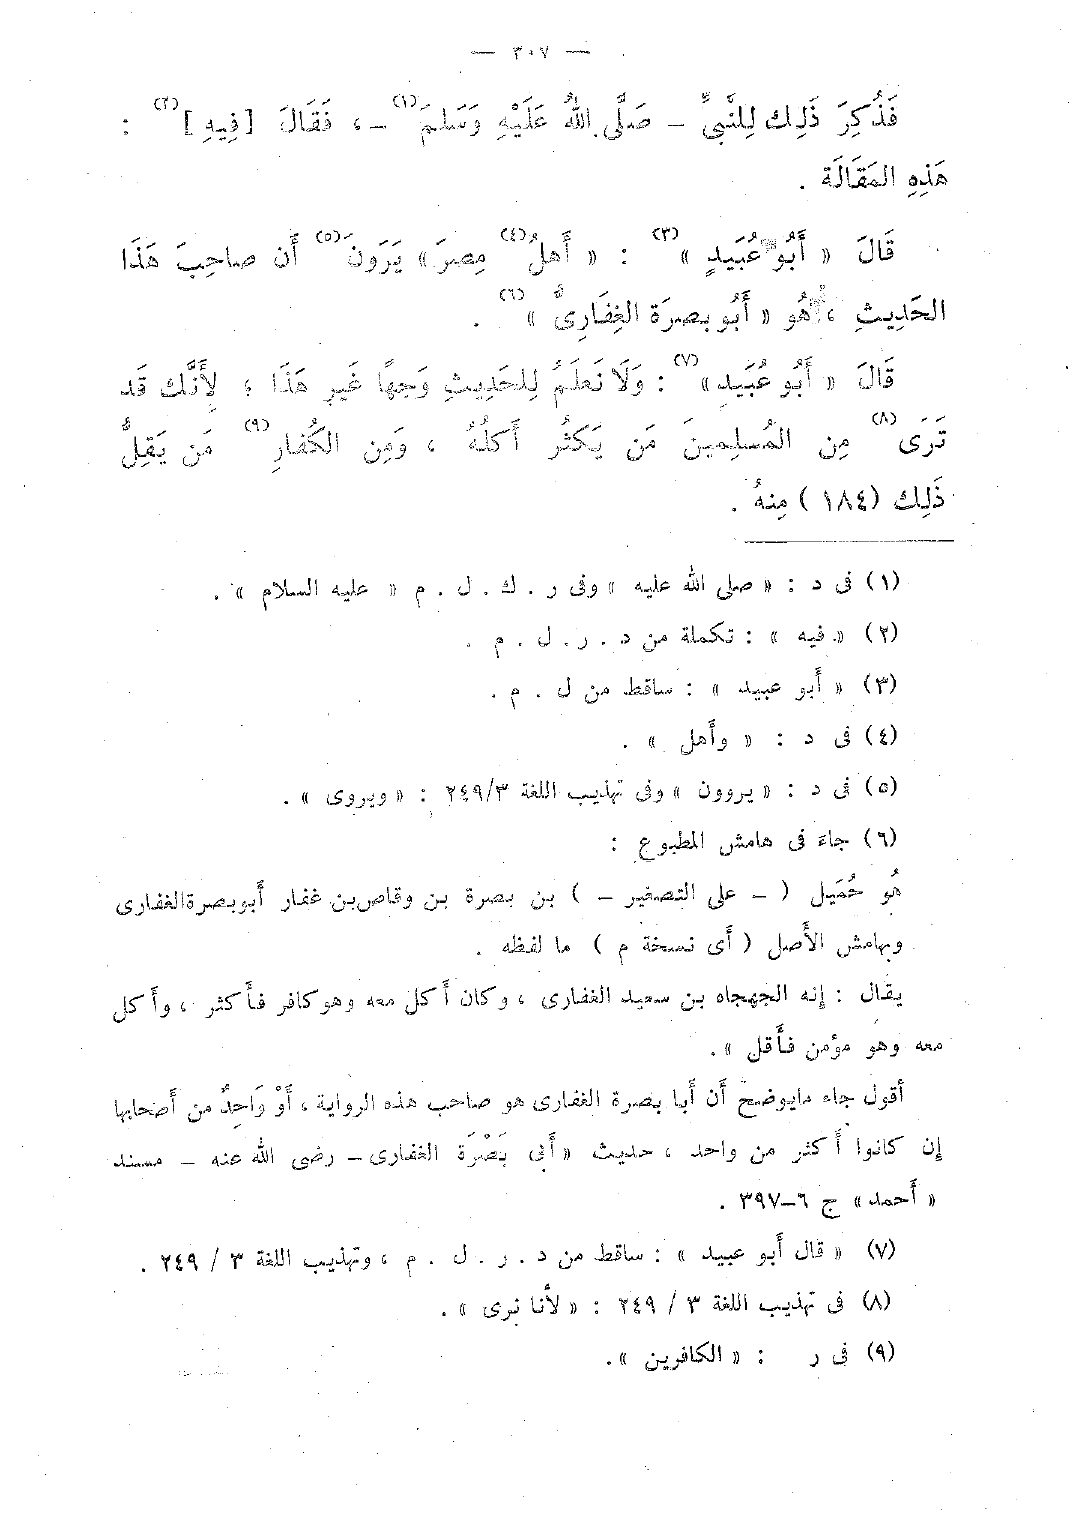 — ٣٠٧ —
فَذُكِرَ ذَلِك لِلنَّبىِّ – صَلَّى اللهُ عَلَيْهِ وَسَلمَ(١) –، فَقَالَ [فِيهِ](٢) :
هَذِهِ المَقَالَة .
قَالَ « أَبُو عُبَيدٍ »(٣) : « أَهلُ(٤) مِصرَ» يَرَونَ(٥) أَن صاحِبَ هَذَا
الحَدِيثِ ، هُو « أَبُو بصرَة الغِفَارِىُّ »(٦) .
قَالَ « أَبُو عُبَيدِ»(٧) : وَلَا نَعلَمُ لِلحَدِيثِ وَجهًا غَيرِ هَذَا ؛ لِأَنَّك قَد
تَرَى(٨) مِن المُسلِمينَ مَن يَكثُر أَكلُهُ ، وَمِن الكُفارِ(٩) مَن يَقِلُّ
ذَلِك (١٨٤) مِنهُ .
(١) فى د : « صلى الله عليه » وفى ر . ك . ل . م « عليه السلام » .
(٢) « فيه » : تكملة من د . ر . ل . م .
(٣) « أبو عبيد » : ساقط من ل . م .
(٤) فى د : « وأهل » .
(٥) فى د : « يروون » وفى تهذيب اللغة ٢٤٩/٣ : « ويروى » .
(٦) جاء فى هامش المطبوع :
هُو حُمَيل ( – على التصغير – ) بن بصرة بن وقاص بن غفار أبوبصرة الغفارى
وبهامش الأصل ( أى نسخة م ) ما لفظه .
يقال : إنه الجهجاه بن سعيد الغفارى ، وكان أكل معه وهو كافر فأكثر ، وأكل
معه وهو مؤمن فأقل » .
أقول جاء مايوضح أن أبا بصرة الغفارى هو صاحب هذه الرواية ، أَوْ وَاحِدٌ من أصحابها
إن كانوا أكثر من واحد ، حديث « أبى بَصْرَة الغفارى – رضى الله عنه – مسند
« أحمد » ج ٦–٣٩٧ .
(٧) « قال أبو عبيد » : ساقط من د . ر . ل . م ، وتهذيب اللغة ٣ / ٢٤٩ .
(٨) فى تهذيب اللغة ٣ / ٢٤٩ : « لأنا نرى » .
(٩) فى ر : « الكافرين » .